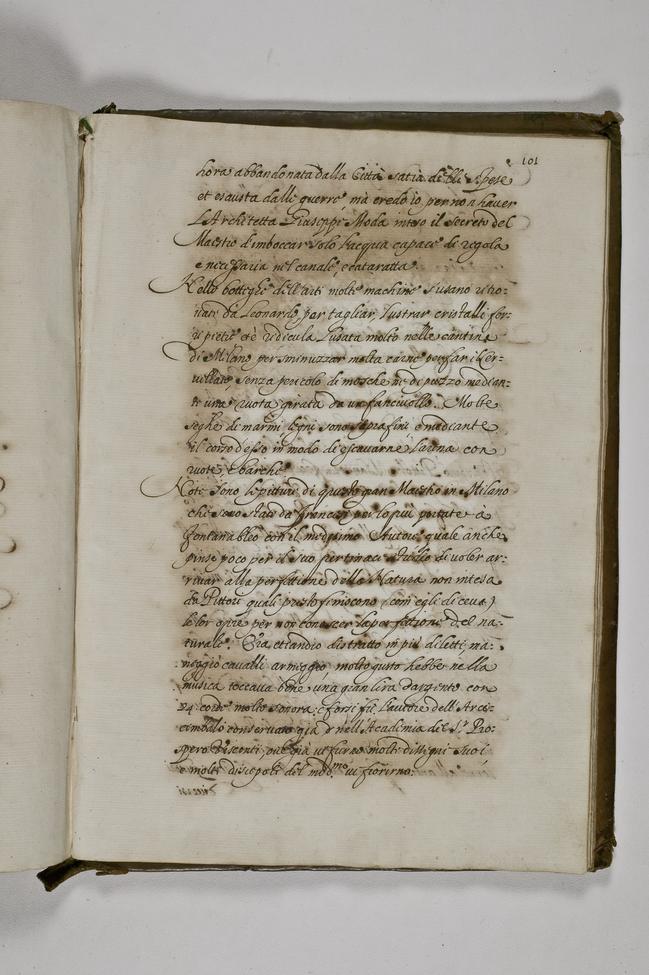 101
hora abbandonata dalla Città satia di spese
et esausta dalli guerre, mà credo io per non haver
L'Architetta Giuseppe Moda inteso il secreto del
Maestro d'imboccar solo l'acqua capace di regola
e necessaria nel canale, e cataratta.
Nelle botteghe dell'arti molte machine s'usano ritro:
nate da Leonardo per tagliar, lustrar cristalli, for:
ri pietre ridicula l'usata molto nelle cantine
di Milano per sminuzzar molta carne per far il Cer:
uellato senza pericolo di mosche ne di puzzo median:
te una ruota girata da un fanciullo. Molte
seghe di marmi legni sono soprafini e mediante
il corso d'esso in modo di escavarne l'arena con
ruote e barche.
Note sono le pitture di questo gran Maestro in Milano
che sono state da francesi per lo più portate à
Fontanableo con el medesimo Autore quale anche
pinse poco per il suo pertinace studio di voler ar:
rivar alla perfettione della Natura non intesa
da Pittori quali presto finiscono (com'egli diceua)
le lor opre per non conoscer la perfettione del na:
turale. Era etiandio distratto in più diletti, ma:
neggio cavalli armeggiò molto gusto hebbe nella
musica toccaua bene una gran lira d'argento con
24 corde molto sonora, e forsi fù l'autore dell'Arci:
cimbalo conservato già nell'Academia del S.r Pro:
spero Visconti, oue già ui furno molti dissegni suoi
e molti discepoli del med.mo ui fiorirno.